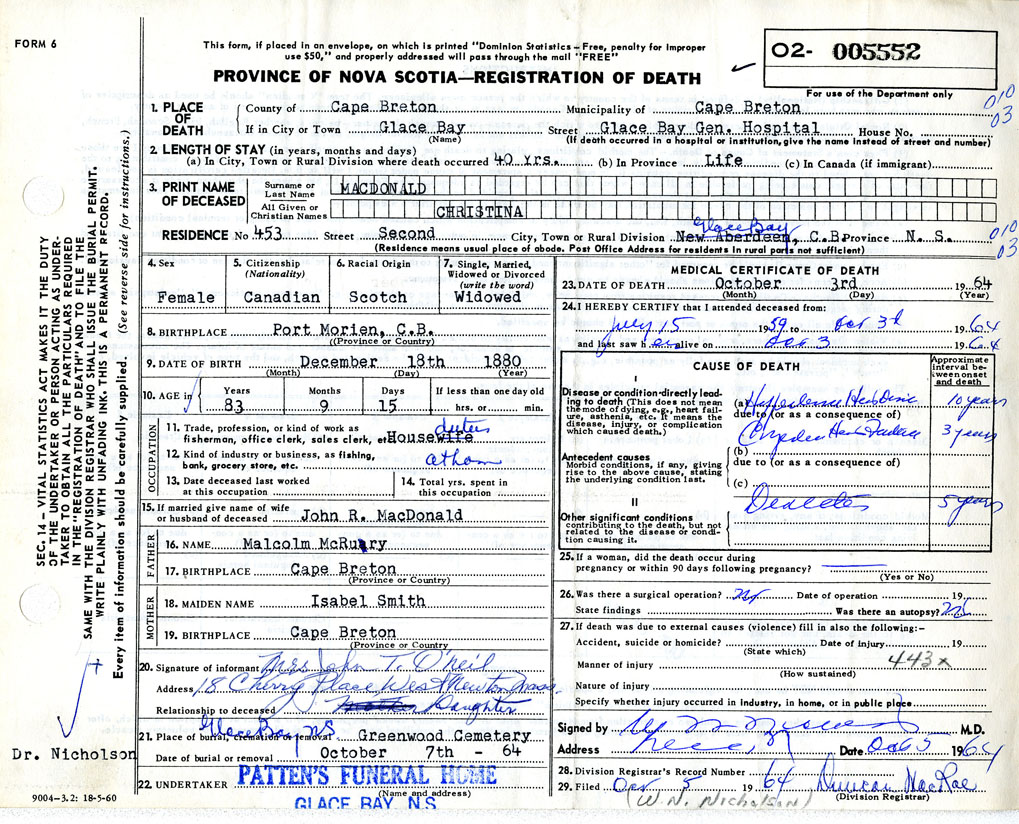 FORM 6
This form, if placed in an envelope, on which is printed "Dominion Statistics – Free, penalty for improper
use $50," and properly addressed will pass through the mail "FREE"
PROVINCE OF NOVA SCOTIA—REGISTRATION OF DEATH
02- 005552
For use of the Department only
010
03
1. PLACE OF DEATH
County of Cape Breton Municipality of Cape Breton
If in City or Town Glace Bay Street Glace Bay Gen. Hospital House No.
(Name) (If death occurred in a hospital or institution, give the name instead of street and number)
2. LENGTH OF STAY (in years, months and days)
(a) In City, Town or Rural Division where death occurred 40 Yrs. (b) In Province Life (c) In Canada (if immigrant)
3. PRINT NAME OF DECEASED
Surname or Last Name MACDONALD
All Given or Christian Names CHRISTINA
Glace Bay
RESIDENCE No 453 Street Second City, Town or Rural Division New Aberdeen, C.B. Province N. S.
010
03
(Residence means usual place of abode. Post Office Address for residents in rural parts not sufficient)
4. Sex
Female
5. Citizenship
(Nationality)
Canadian
6. Racial Origin
Scotch
7. Single, Married, Widowed or Divorced
(write the word)
Widowed
8. BIRTHPLACE Port Morien, C.B.
((Province or Country)
9. DATE OF BIRTH December 18th 1880
(Month) (Day) (Year)
10. AGE in
Years Months Days If less than one day old
83 9 15 hrs. or min.
OCCUPATION
11. Trade, profession, or kind of work as duties
fisherman, office clerk, sales clerk, etc Housewife
12. Kind of industry or business, as fishing,
bank, grocery store, etc. at home
13. Date deceased last worked
at this occupation
14. Total yrs. spent in
this occupation
15. If married give name of wife
or husband of deceased John R. MacDonald
FATHER
16. NAME Malcolm McRury
17. BIRTHPLACE Cape Breton
(Province or Country)
MOTHER
18. MAIDEN NAME Isabel Smith
19. BIRTHPLACE Cape Breton
(Province or Country
20. Signature of informant Mrs John T. O'Neil
Address 18 Cherry Place West Newton Mass
Relationship to deceased Daughter
Glace Bay NS
21. Place of burial, cremation or removal Greenwood Cemetery
Date of burial or removal October 7th - 64
22. UNDERTAKER PATTEN'S FUNERAL HOME
(Name and address)
GLACE BAY, N.S.
MEDICAL CERTIFICATE OF DEATH
23. DATE OF DEATH October 3rd 1964
(Month) (Day) (Year)
24. I HEREBY CERTIFY that I attended deceased from:
July 15 1959 to Oct 3rd 1964
and last saw her alive on Oct 3 1964
CAUSE OF DEATH
Approximate interval between onset and death
I
Disease or condition directly leading to death (This does not mean
the mode of dying, e.g., heart failure, asthenia, etc. It means the
disease, injury, or complication
which caused death.)
(a) 10 years
due to (or as a consequence of)
3 years
Antecedent causes
Morbid conditions, if any, giving
rise to the above cause, stating
the underlying condition last.
(b)
due to (or as a consequence of)
(c)
II
Other significant conditions
contributing to the death, but not
related to the disease or condition causing it.
Diabetes 5 years
25. If a woman, did the death occur during
pregnancy or within 90 days following pregnancy?
(Yes or No)
26. Was there a surgical operation? No Date of operation 19
State findings Was there an autopsy? No
27. If death was due to external causes (violence) fill in also the following:–
Accident, suicide or homicide? Date of injury 19
(State which)
443x
Manner of injury
(How sustained)
Nature of injury
Specify whether injury occurred in industry, in home, or in public place
Signed by M.D.
Address Date Oct 5 1964
28. Division Registrar's Record Number
29. Filed Oct 5 1964 Duncan MacRae
(W. N. Nicholson) (Division Registrar)
SEC. 14—VITAL STATISTICS ACT MAKES IT THE DUTY
OF THE UNDERTAKER OR PERSON ACTING AS UNDER-
TAKER TO OBTAIN ALL THE PARTICULARS REQUIRED
IN THE "REGISTRATION OF DEATH" AND TO FILE THE
SAME WITH THE DIVISION REGISTRAR WHO SHALL ISSUE THE BURIAL PERMIT.
WRITE PLAINLY WITH UNFADING INK. THIS IS A PERMANENT RECORD.
Every item of information should be carefully supplied. (See reverse side for instructions.)
Dr. Nicholson
9004–3.2: 18-5-60